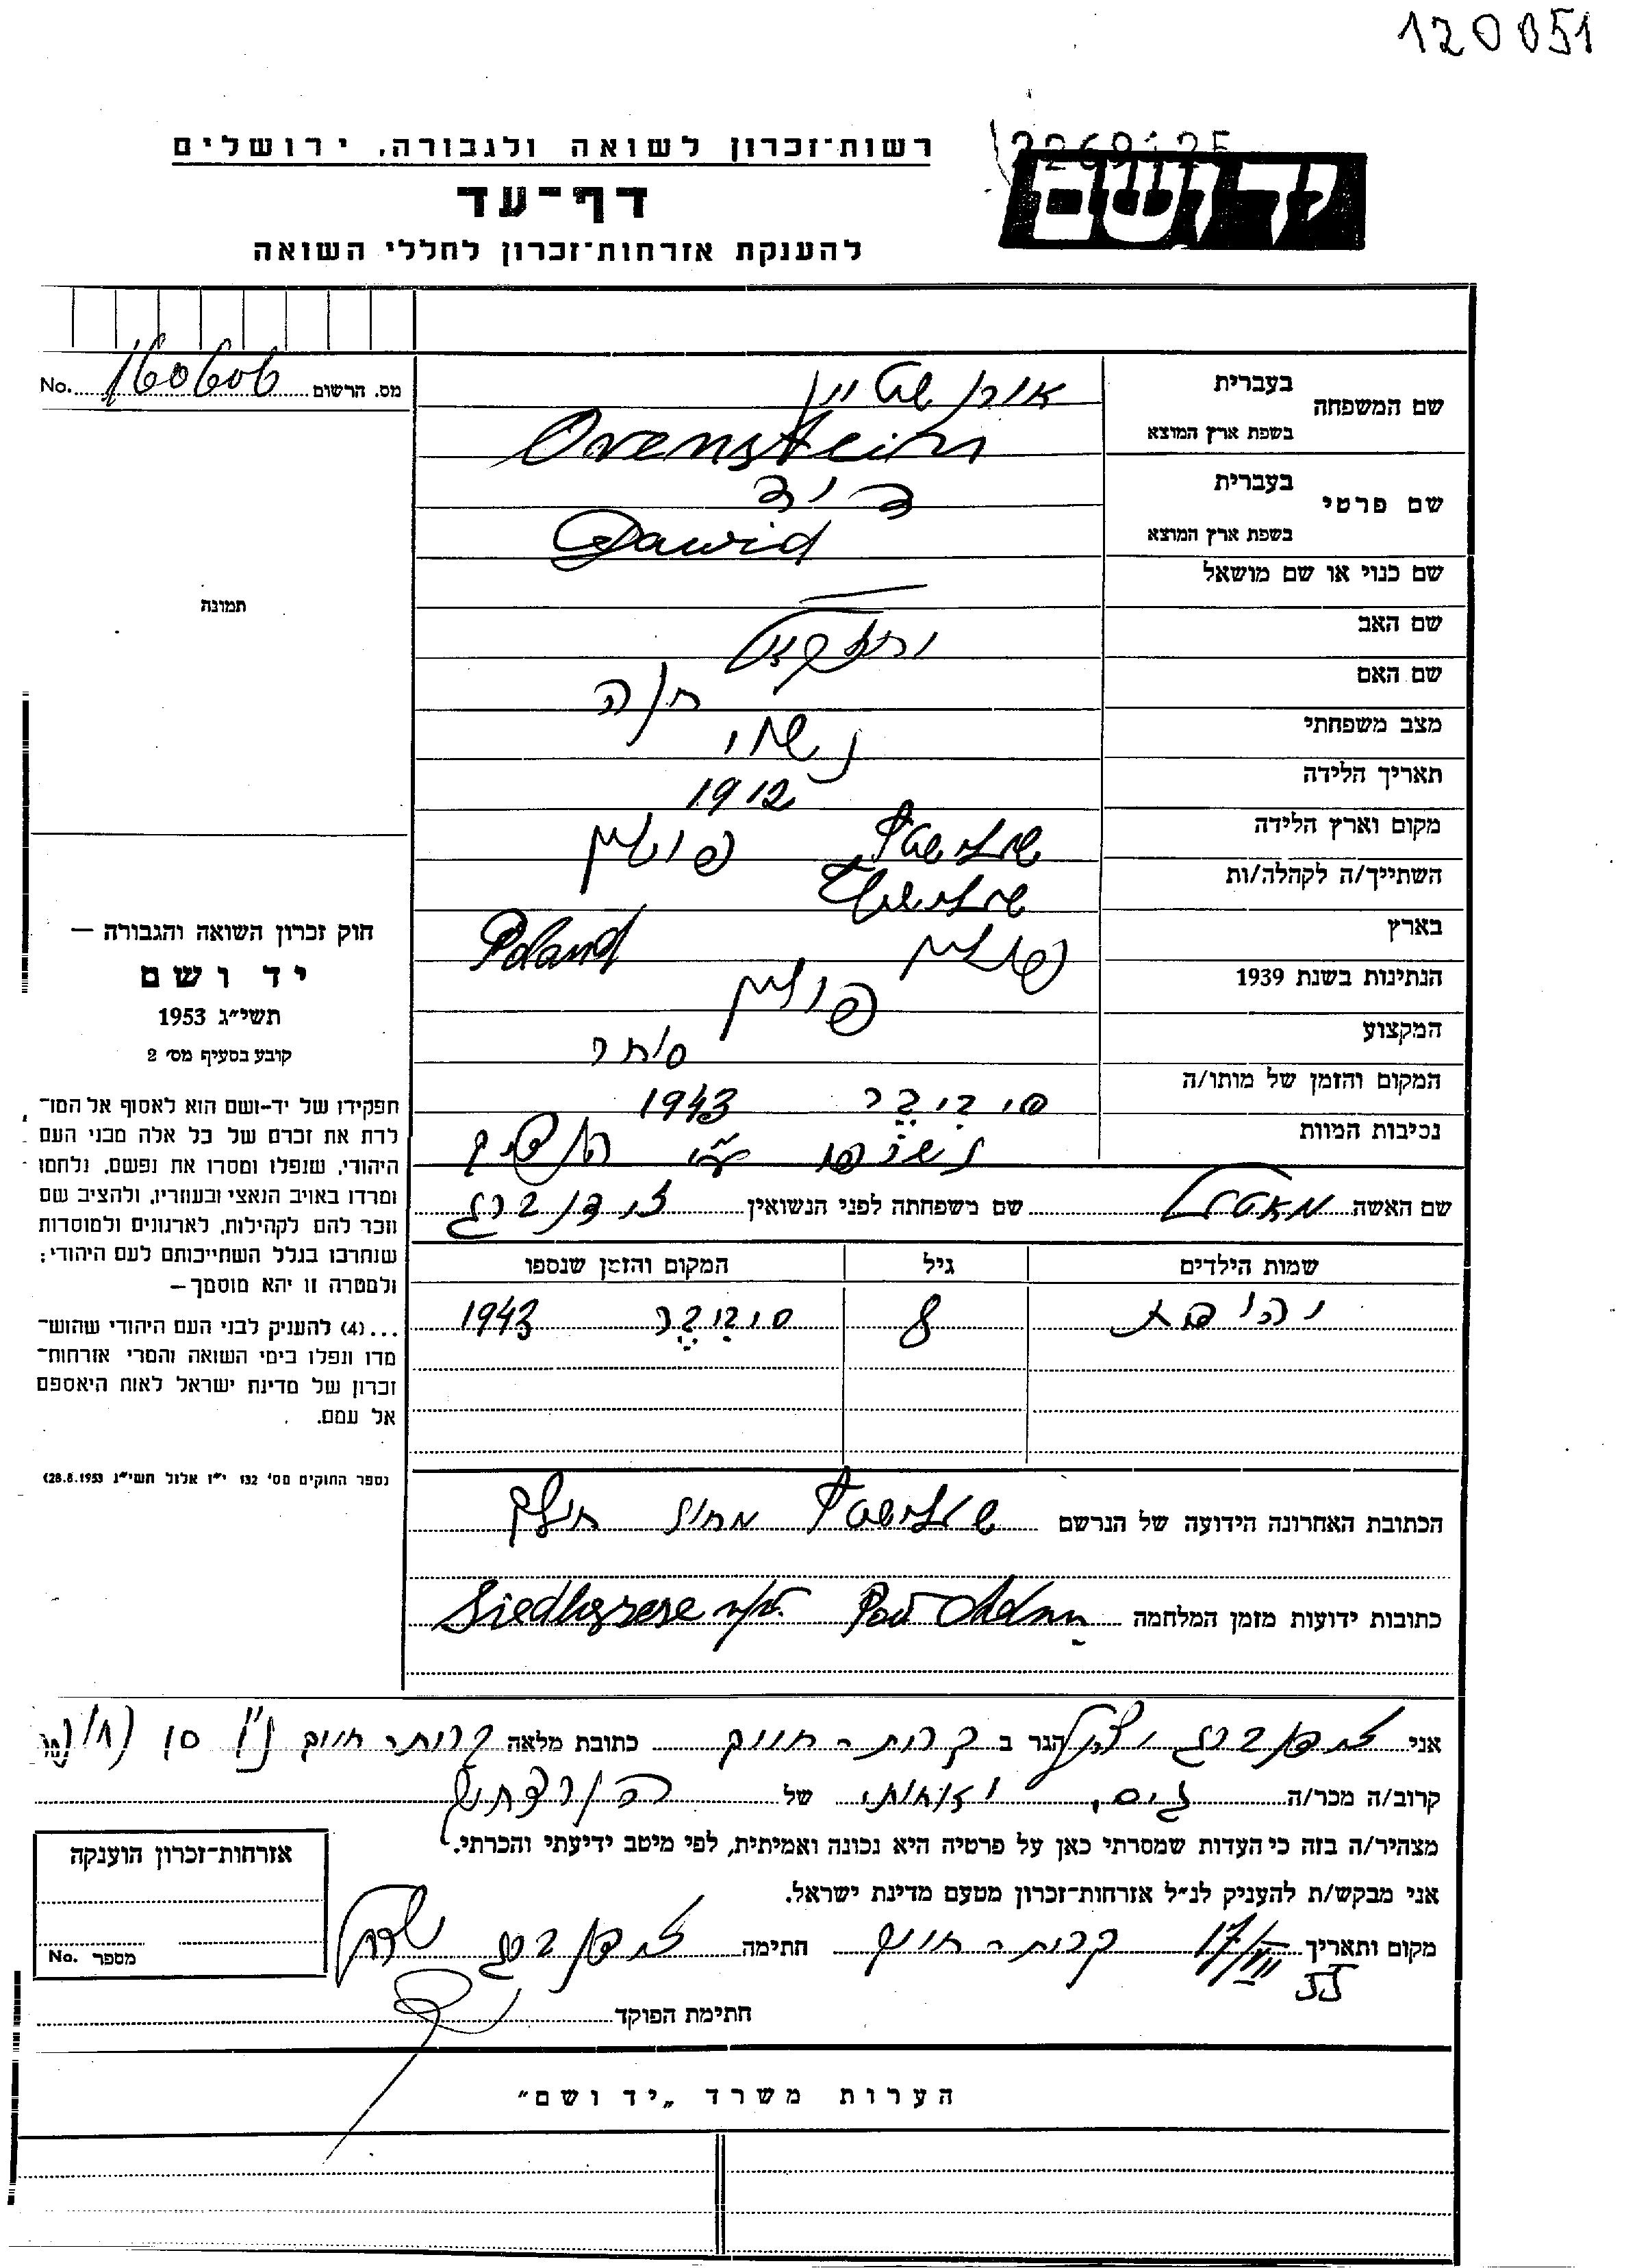 120051
2269125
יד ושם
רשות־זכרון לשואה ולגבורה, ירושלים
דף־עד
להענקת אזרחות־זכרון לחללי השואה
מס. הרשום 160606 No.
שם המשפחה
בעברית
בשפת ארץ המוצא Orenstein
שם פרטי
בעברית דוד
בשפת ארץ המוצא Dawid
שם כנוי או שם מושאל —
שם האב יחזקאל
שם האם חנה
מצב משפחתי נשוי
תאריך הלידה 1912
מקום וארץ הלידה פולין
השתייך/ה לקהלה/ות
בארץ פולין Poland
הנתינות בשנת 1939 פולין
המקצוע סוחר
המקום והזמן של מותו/ה סוביבר 1943
נכיבות המוות
שם האשה שם משפחתה לפני הנשואין
שמות הילדים גיל המקום והזמן שנספו
8 סוביבר 1943
הכתובת האחרונה הידועה של הנרשם מחוז
כתובות ידועות מזמן המלחמה
תמונה
חוק זכרון השואה והגבורה —
יד ושם
תשי״ג 1953
קובע בסעיף מס׳ 2
תפקידו של יד-ושם הוא לאסוף אל המו־
לדת את זכרם של כל אלה מבני העם
היהודי, שנפלו ומסרו את נפשם, נלחמו
ומרדו באויב הנאצי ובעוזריו, ולהציב שם
וזכר להם לקהילות, לארגונים ולמוסדות
שנחרבו בגלל השתייכותם לעם היהודי;
ולמטרה זו יהא מוסמך—
...(4) להענתיק לבני העם היהודי שהוש־
מדו ונפלו בימי השואה והמרי אזרחות־
זכרון של מדינת ישראל לאות היאספם
אל עמם.
(ספר החוקים מס׳ 132 י״ז אלול תשי״ג 28.8.1953)
אני הגר ב קרית חיים כתובת מלאה קרית חיים
קרוב/ה מכר/ה גיס של הנרצח
מצהיר/ה בזה כי העדות שמסרתי כאן על פרטיה היא נכונה ואמיתית, לפי מיטב ידיעתי והכרתי.
אני מבקש/ת להעניק לנ״ל אזרחות־זכרון מטעם מדינת ישראל.
מקום ותאריך 17/VIII 55 קרית חיים חתימה
חתימת הפוקד
אזרחות־זכרון הוענקה
מספר No.
הערות משרד „יד ושם״